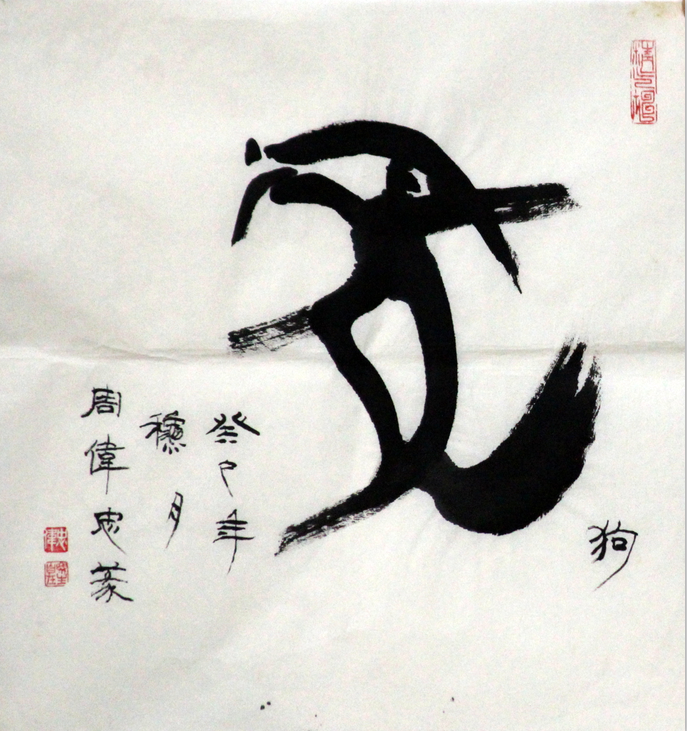 狗
癸巳年
穗月
周偉忠篆